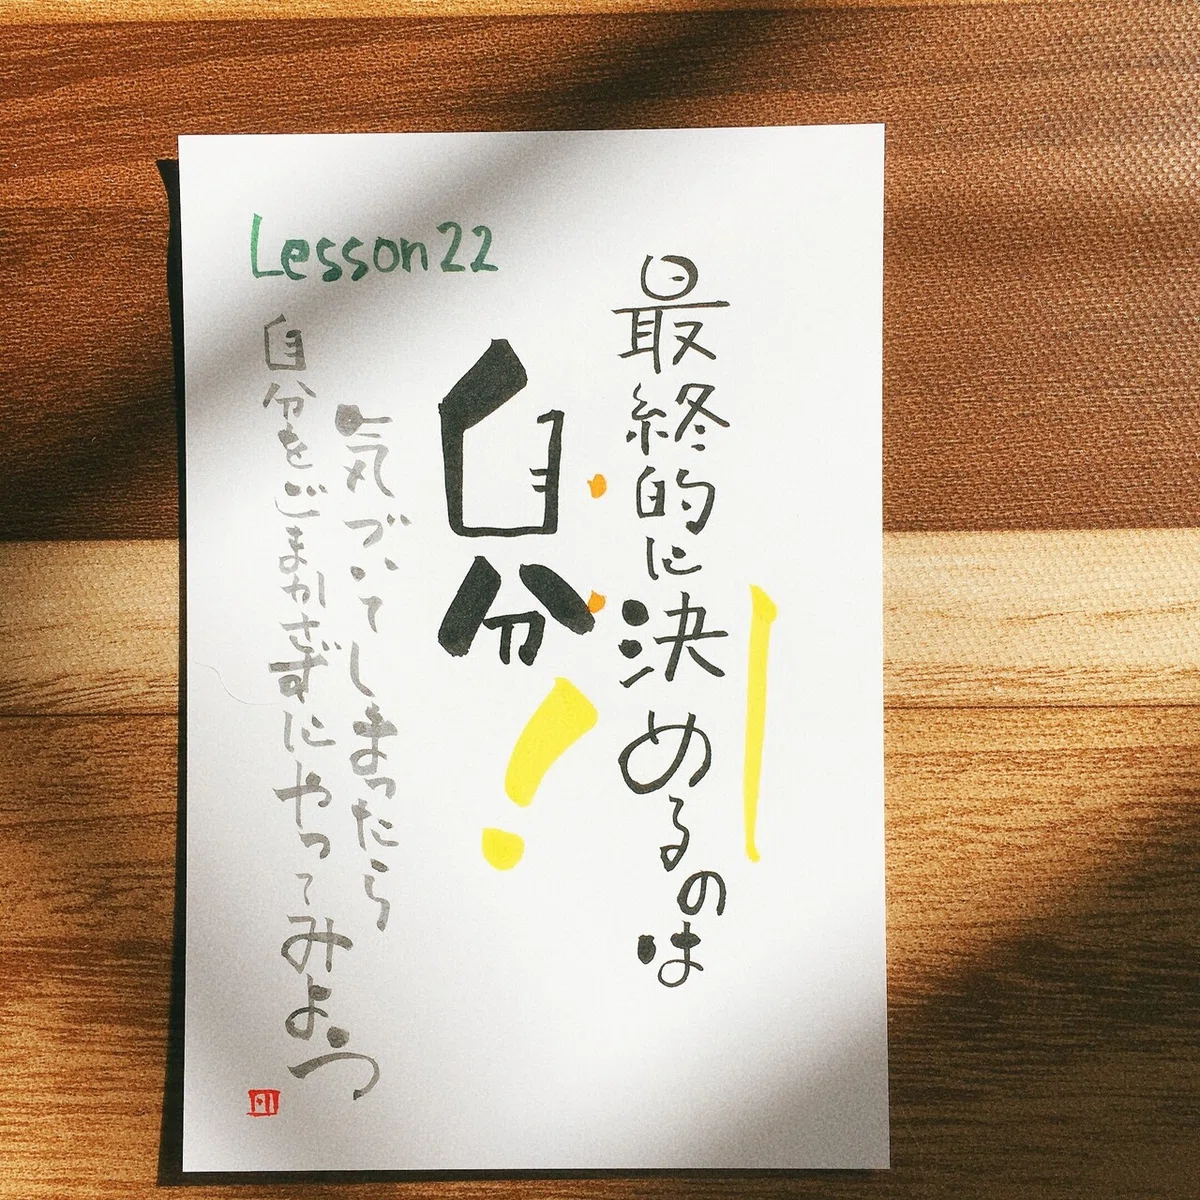 Lesson22
最終的に決めるのは
自分!
気づいてしまったら
自分をごまかさずにやってみよう